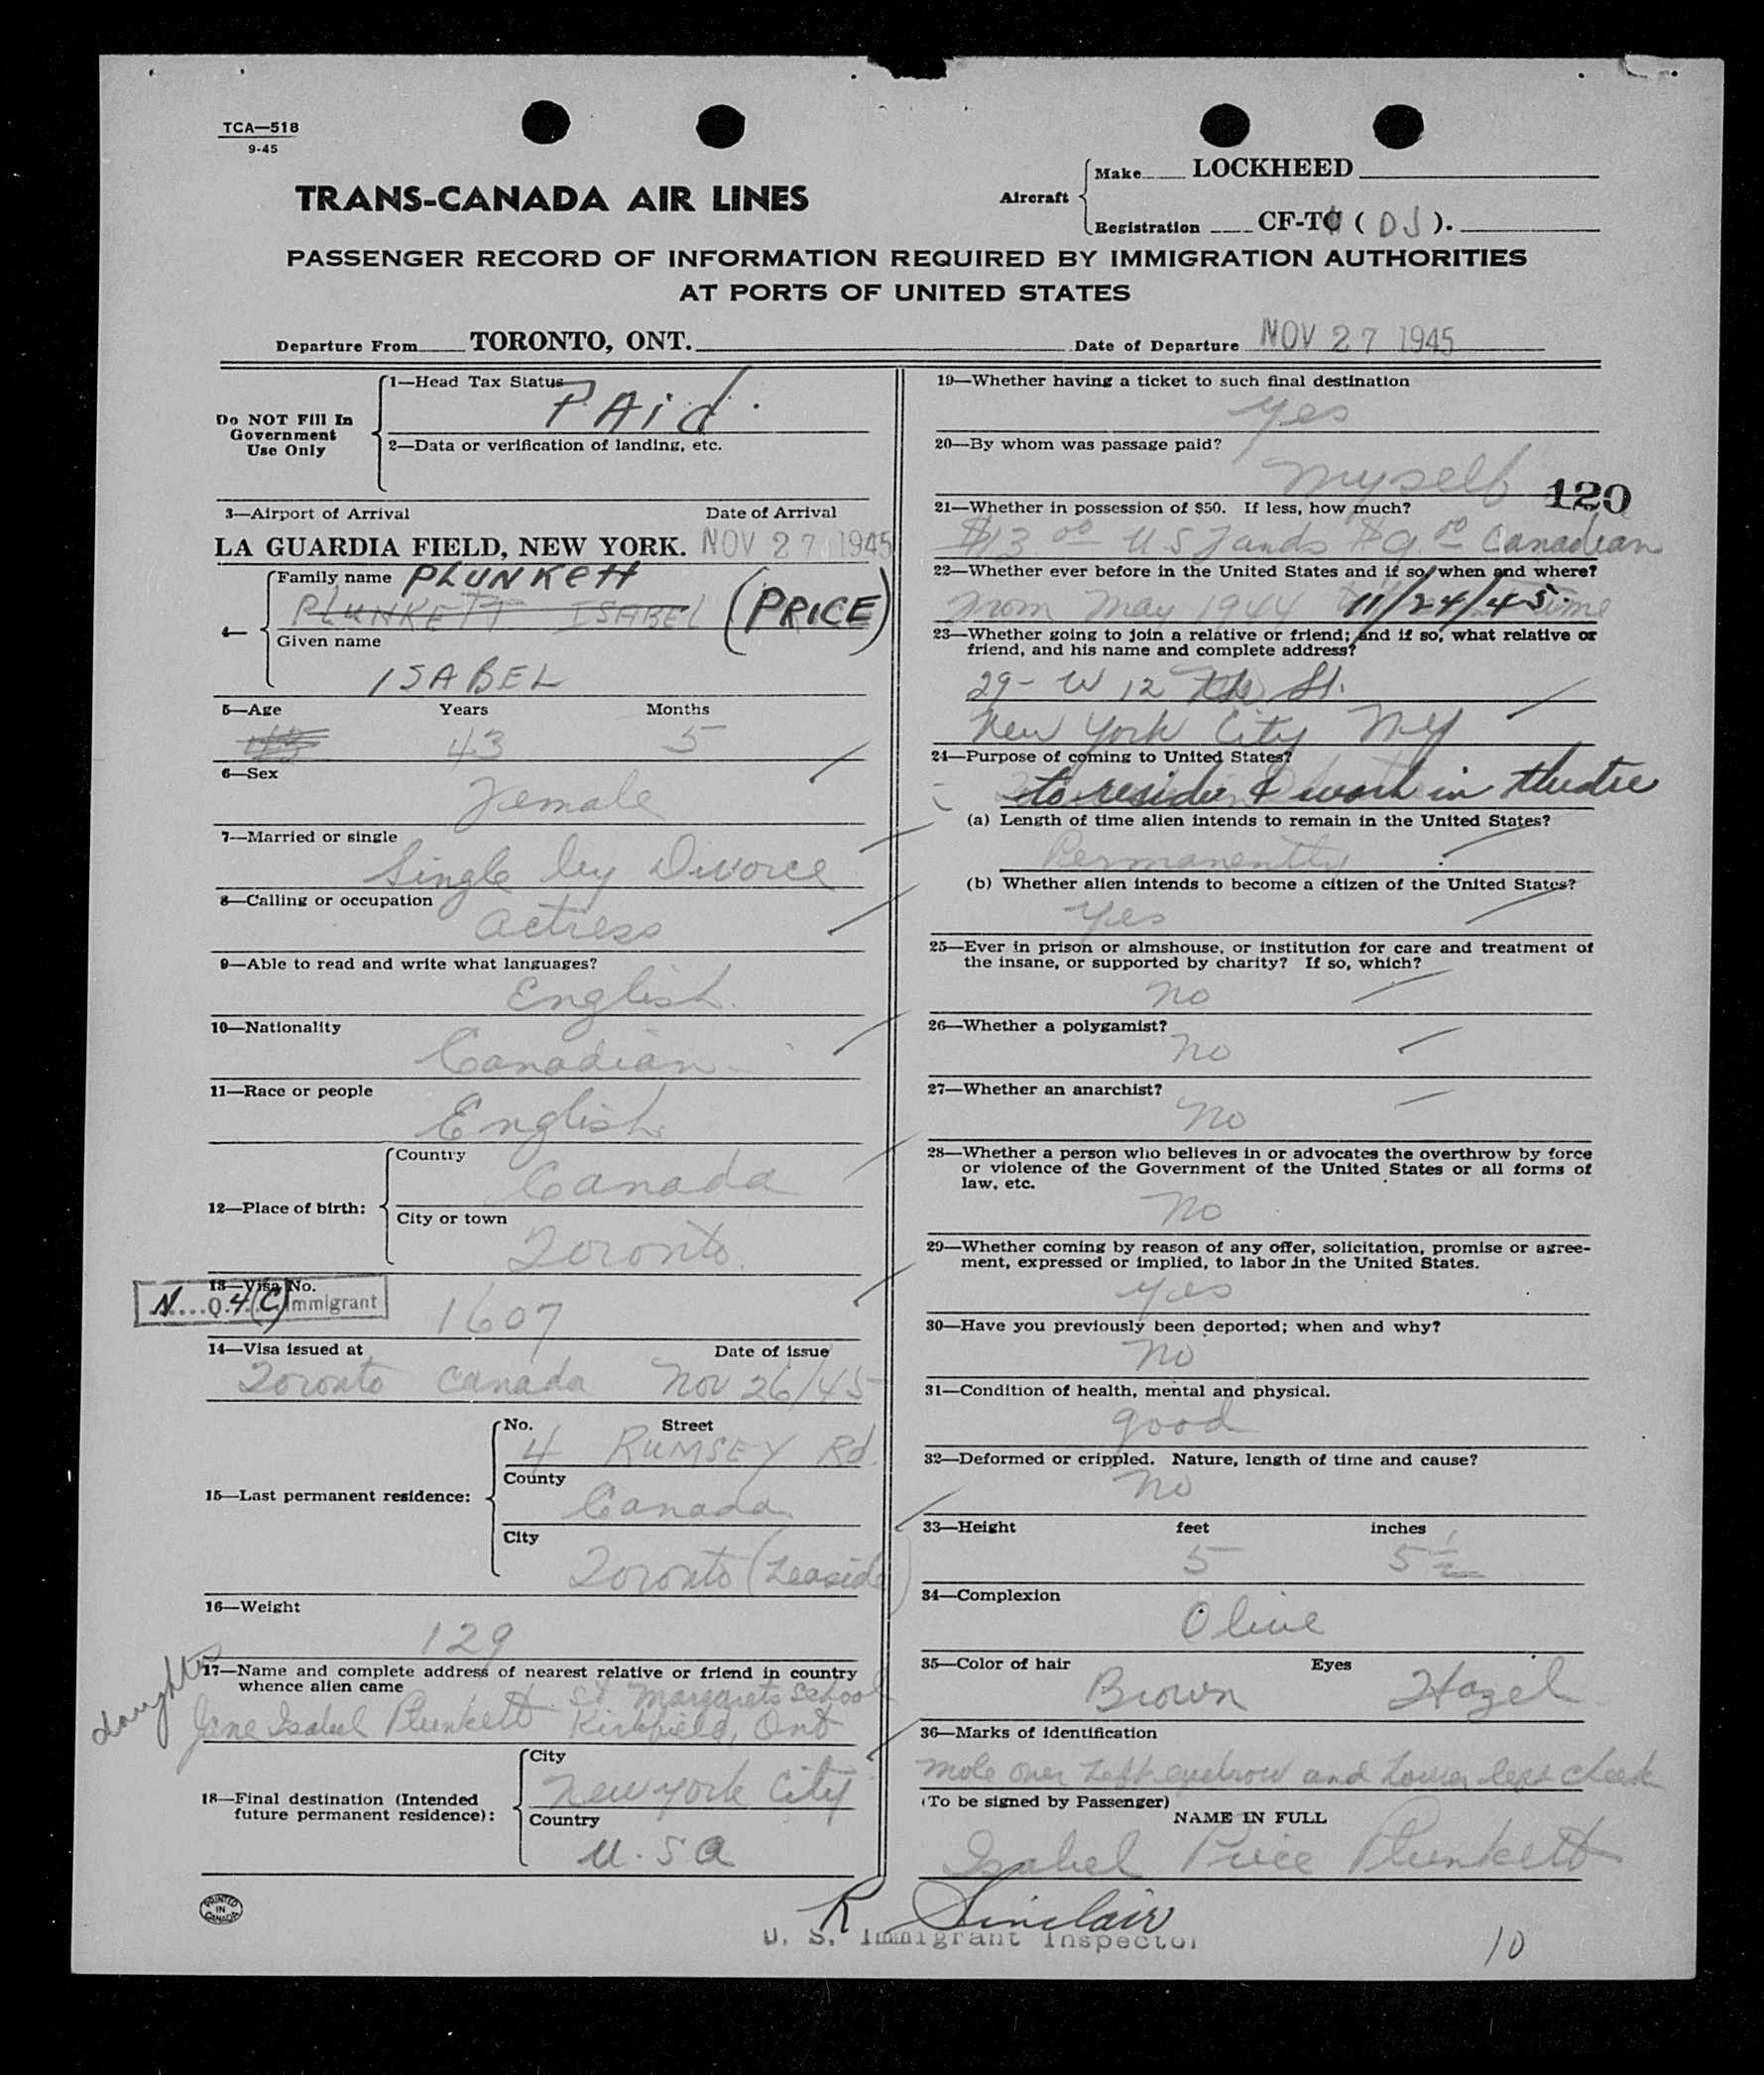 TCA—518
9-45
TRANS-CANADA AIR LINES
Aircraft
Make LOCKHEED
Registration CF-TC ( DJ ).
PASSENGER RECORD OF INFORMATION REQUIRED BY IMMIGRATION AUTHORITIES
AT PORTS OF UNITED STATES
Departure From TORONTO, ONT. Date of Departure NOV 27 1945
Do NOT Fill In
Government
Use Only
1—Head Tax Status
PAid.
2—Data or verification of landing, etc.
3—Airport of Arrival Date of Arrival
LA GUARDIA FIELD, NEW YORK. NOV 27 1945
4—
Family name PLUNKETT
PLUNKETT ISABEL (PRICE)
Given name
ISABEL
5—Age Years Months
43 5
6—Sex
Female
7—Married or single
Single by Divorce
8—Calling or occupation
actress
9—Able to read and write what languages?
English.
10—Nationality
Canadian.
11—Race or people
English.
12—Place of birth:
Country
Canada
City or town
Toronto.
13—Visa No.
N....Q.4(C) Immigrant
1607
14—Visa issued at Date of issue
Toronto Canada Nov 26/45
15—Last permanent residence:
No. Street
4 RUMSEY Rd.
County
Canada
City
Toronto (Leaside)
16—Weight
129
daughter
17—Name and complete address of nearest relative or friend in country
whence alien came
St Margarets School
Jane Isabel Plunkett Kirkfield, Ont
18—Final destination (Intended
future permanent residence):
City
New York City
Country
U.S a
PRINTED
IN
CANADA
19—Whether having a ticket to such final destination
yes
20—By whom was passage paid?
myself
120
21—Whether in possession of $50. If less, how much?
$13 00 U S Funds $9.00 Canadian
22—Whether ever before in the United States and if so, when and where?
From May 1944 11/24/45. time
23—Whether going to join a relative or friend; and if so, what relative or
friend, and his name and complete address?
29- W 12 th St.
New York City NY
24—Purpose of coming to United States?
to reside & work in theatre
(a) Length of time alien intends to remain in the United States?
Permanently
(b) Whether alien intends to become a citizen of the United States?
yes
25—Ever in prison or almshouse, or institution for care and treatment of
the insane, or supported by charity? If so, which?
no
26—Whether a polygamist?
no
27—Whether an anarchist?
no
28—Whether a person who believes in or advocates the overthrow by force
or violence of the Government of the United States or all forms of
law, etc.
no
29—Whether coming by reason of any offer, solicitation, promise or agree-
ment, expressed or implied, to labor in the United States.
yes
30—Have you previously been deported; when and why?
no
31—Condition of health, mental and physical.
good
32—Deformed or crippled. Nature, length of time and cause?
no
33—Height feet inches
5 5 1/2
34—Complexion
Olive
35—Color of hair Eyes
Brown Hazel
36—Marks of identification
mole over Left eyebrow and Lower left cheek
(To be signed by Passenger)
NAME IN FULL
Isabel Price Plunkett
R Sinclair
U. S. Immigrant Inspector
10